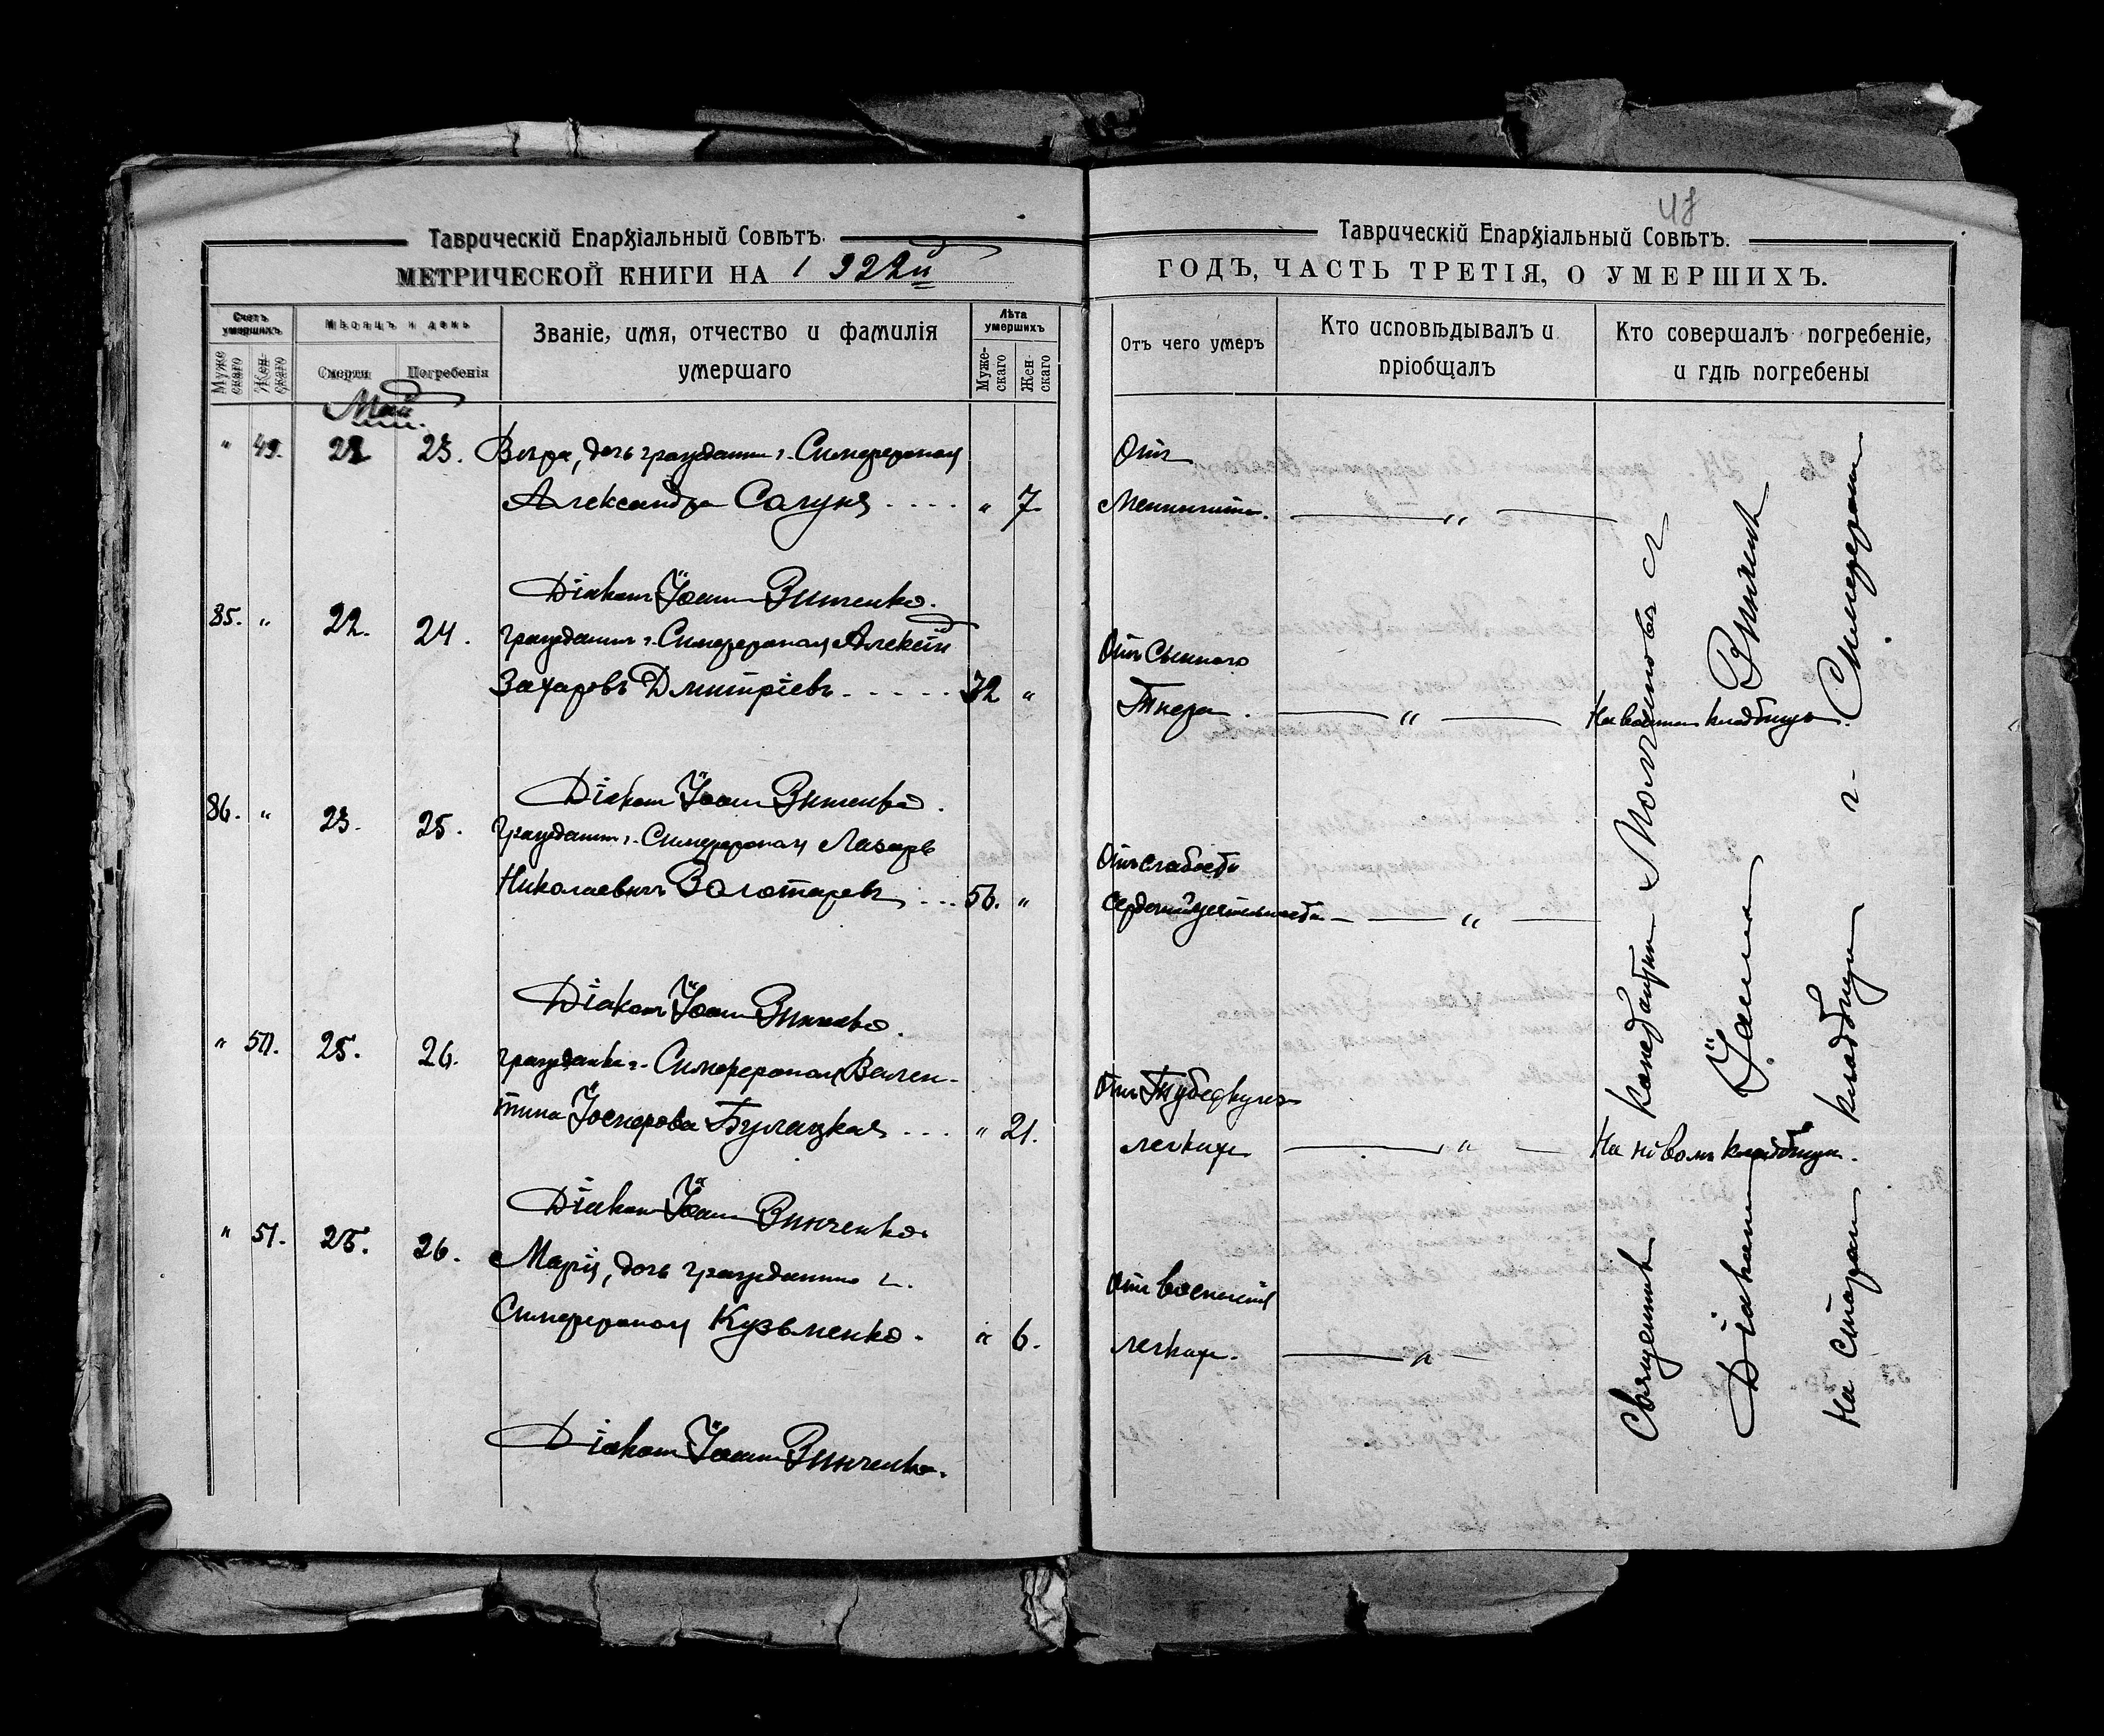 Таврическій Епархіальный Совѣтъ.
МЕТРИЧЕСКОЙ КНИГИ НА 1922й
Счетъ умершихъ
Мѣсяцъ и день
Званіе, имя, отчество и фамилія умершаго
Лѣта умершихъ
Мужескаго
Женскаго
Смерти
Погребенія
Мужескаго
Женскаго
Май
" 49. 22 23. Вѣра, дочь гражданина г. Симферополя
Александра Салуня . . . . " 7.
Діаконъ Іоаннъ Винченко.
85. " 22. 24. гражданинъ г. Симферополя Алексѣй
Захаровъ Дмитріевъ. - - - - - 32 "
Діаконъ Іоаннъ Винченко.
86. " 23. 25. гражданинъ г. Симферополя Лазарь
Николаевичъ Золотаревъ . . . . 56. "
Діаконъ Іоаннъ Винченко.
" 50. 25. 26. гражданка г. Симферополя Вален-
тина Іосифова Булацкая . . . . " 21.
Діаконъ Іоаннъ Винченко.
" 51. 25. 26. Марія, дочь гражданина г.
Симферополя Кузьменко. " 6.
Діаконъ Іоаннъ Винченко.
48
Таврическій Епархіальный Совѣтъ.
ГОДЪ, ЧАСТЬ ТРЕТІЯ, О УМЕРШИХЪ.
Отъ чего умеръ
Кто исповѣдывалъ и пріобщалъ
Кто совершалъ погребеніе, и гдѣ погребены
Отъ
Менингита. "
Отъ Сыпного
Тифа. " На кладбищѣ.
Отъ слабости
сердечной дѣятельности "
Отъ Туберкулеза
легкихъ " На новомъ кладбищѣ.
Отъ воспаленія
легкихъ. "
Священникъ съ
Діаконъ Іоаннъ Винченко
На старомъ кладбищѣ г. Симферополя